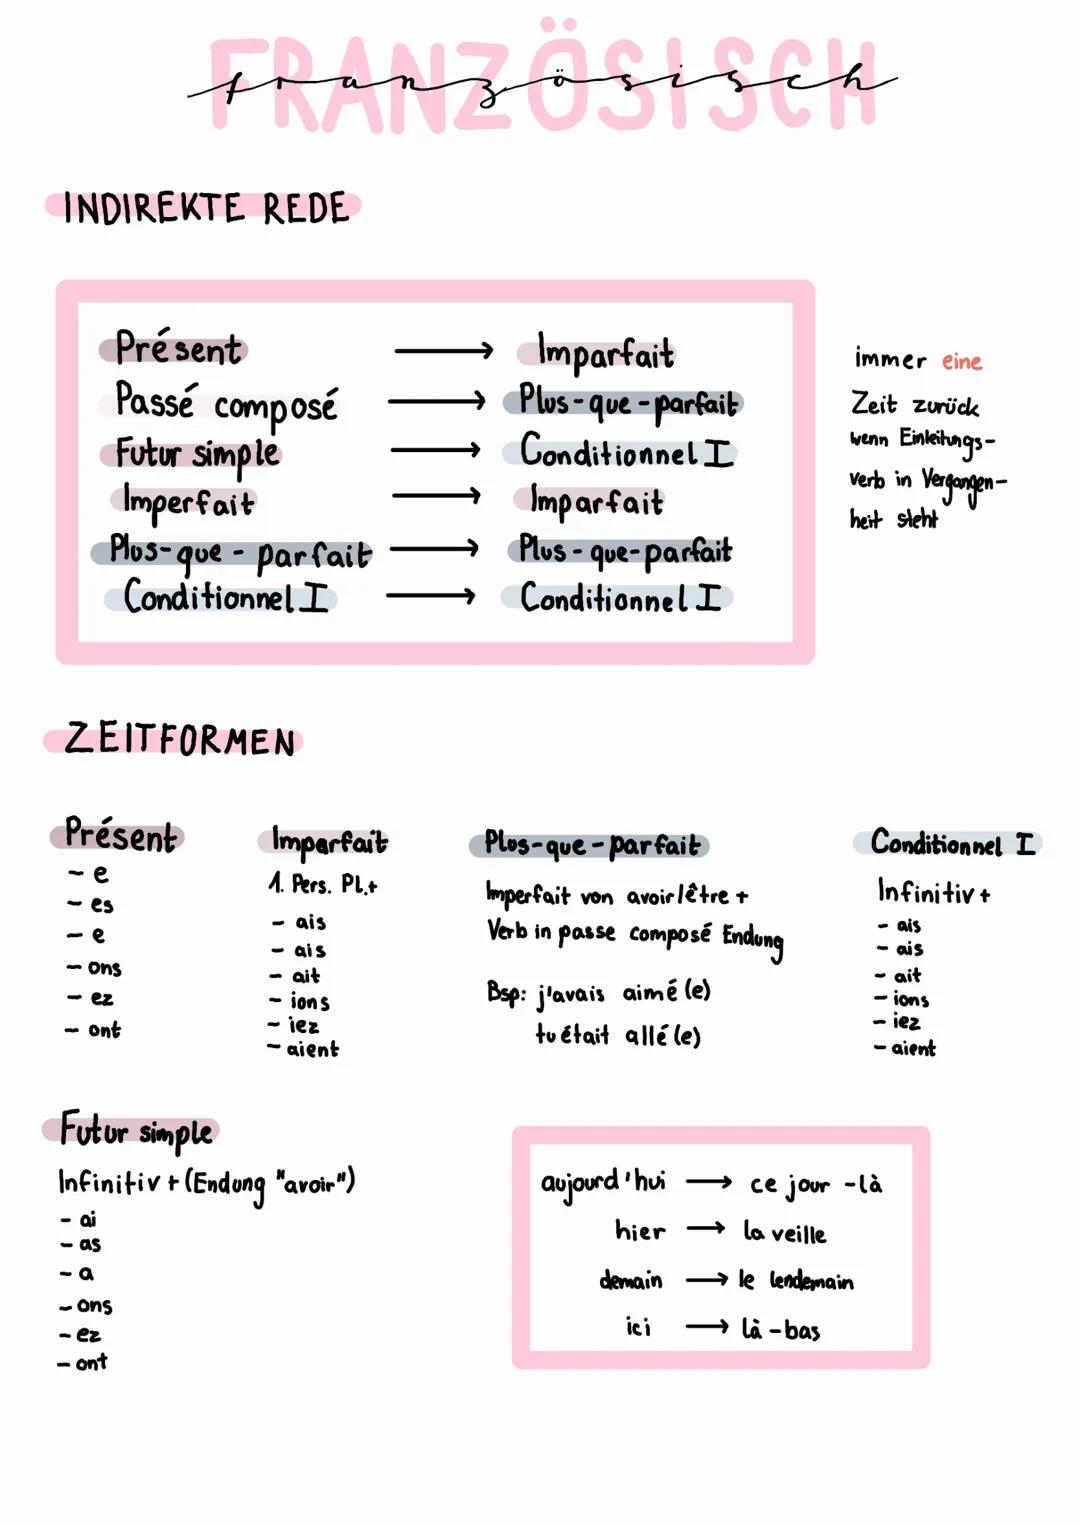 FRANZÖSISCH
französisch
INDIREKTE REDE
Présent → Imparfait
Passé composé → Plus-que-parfait
Futur simple → Conditionnel I
Imperfait → Imparfait
Plus-que-parfait → Plus-que-parfait
Conditionnel I → Conditionnel I
immer eine
Zeit zurück
wenn Einleitungs-
verb in Vergangen-
heit steht
ZEITFORMEN
Présent
- e
- es
- e
- ons
- ez
- ont
Imparfait
1. Pers. Pl.+
- ais
- ais
- ait
- ions
- iez
- aient
Plus-que-parfait
Imperfait von avoir/être +
Verb in passe composé Endung
Bsp: j'avais aimé(e)
tu était allé(e)
Conditionnel I
Infinitiv +
- ais
- ais
- ait
- ions
- iez
- aient
Futur simple
Infinitiv + (Endung "avoir")
- ai
- as
- a
- ons
- ez
- ont
aujourd'hui → ce jour-là
hier → la veille
demain → le lendemain
ici → là-bas